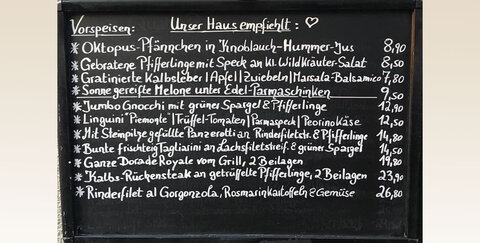 Vorspeisen: Unser Haus empfiehlt: ♡
* Oktopus-Pfännchen in Knoblauch-Hummer-Jus 8,90
* Gebratene Pfifferlinge mit Speck an kl. Wildkräuter-Salat 8,50
* Gratinierte Kalbsleber | Apfel | Zwiebeln | Marsala-Balsamico 7,80
* Sonne gereifte Melone unter Edel-Parmaschinken 9,50
* Jumbo Gnocchi mit grüner Spargel & Pfifferlinge 12,90
* Linguini "Piemonte" | Trüffel-Tomaten | Parmaspeck | Peorinokäse 12,50
* Mit Steinpilze gefüllte Panzerotti an Rinderfiletstr. & Pfifferlinge 14,80
* Bunte frischteig Tagliarini an Lachsfiletstreif. & grüner Spargel 14,50
* Ganze Dorade Royale vom Grill, 2 Beilagen 19,80
* Kalbs-Rückensteak an getrüffelte Pfifferlinge, 2 Beilagen 23,90
* Rinderfilet al Gorgonzola, Rosmarinkartoffeln & Gemüse 26,80